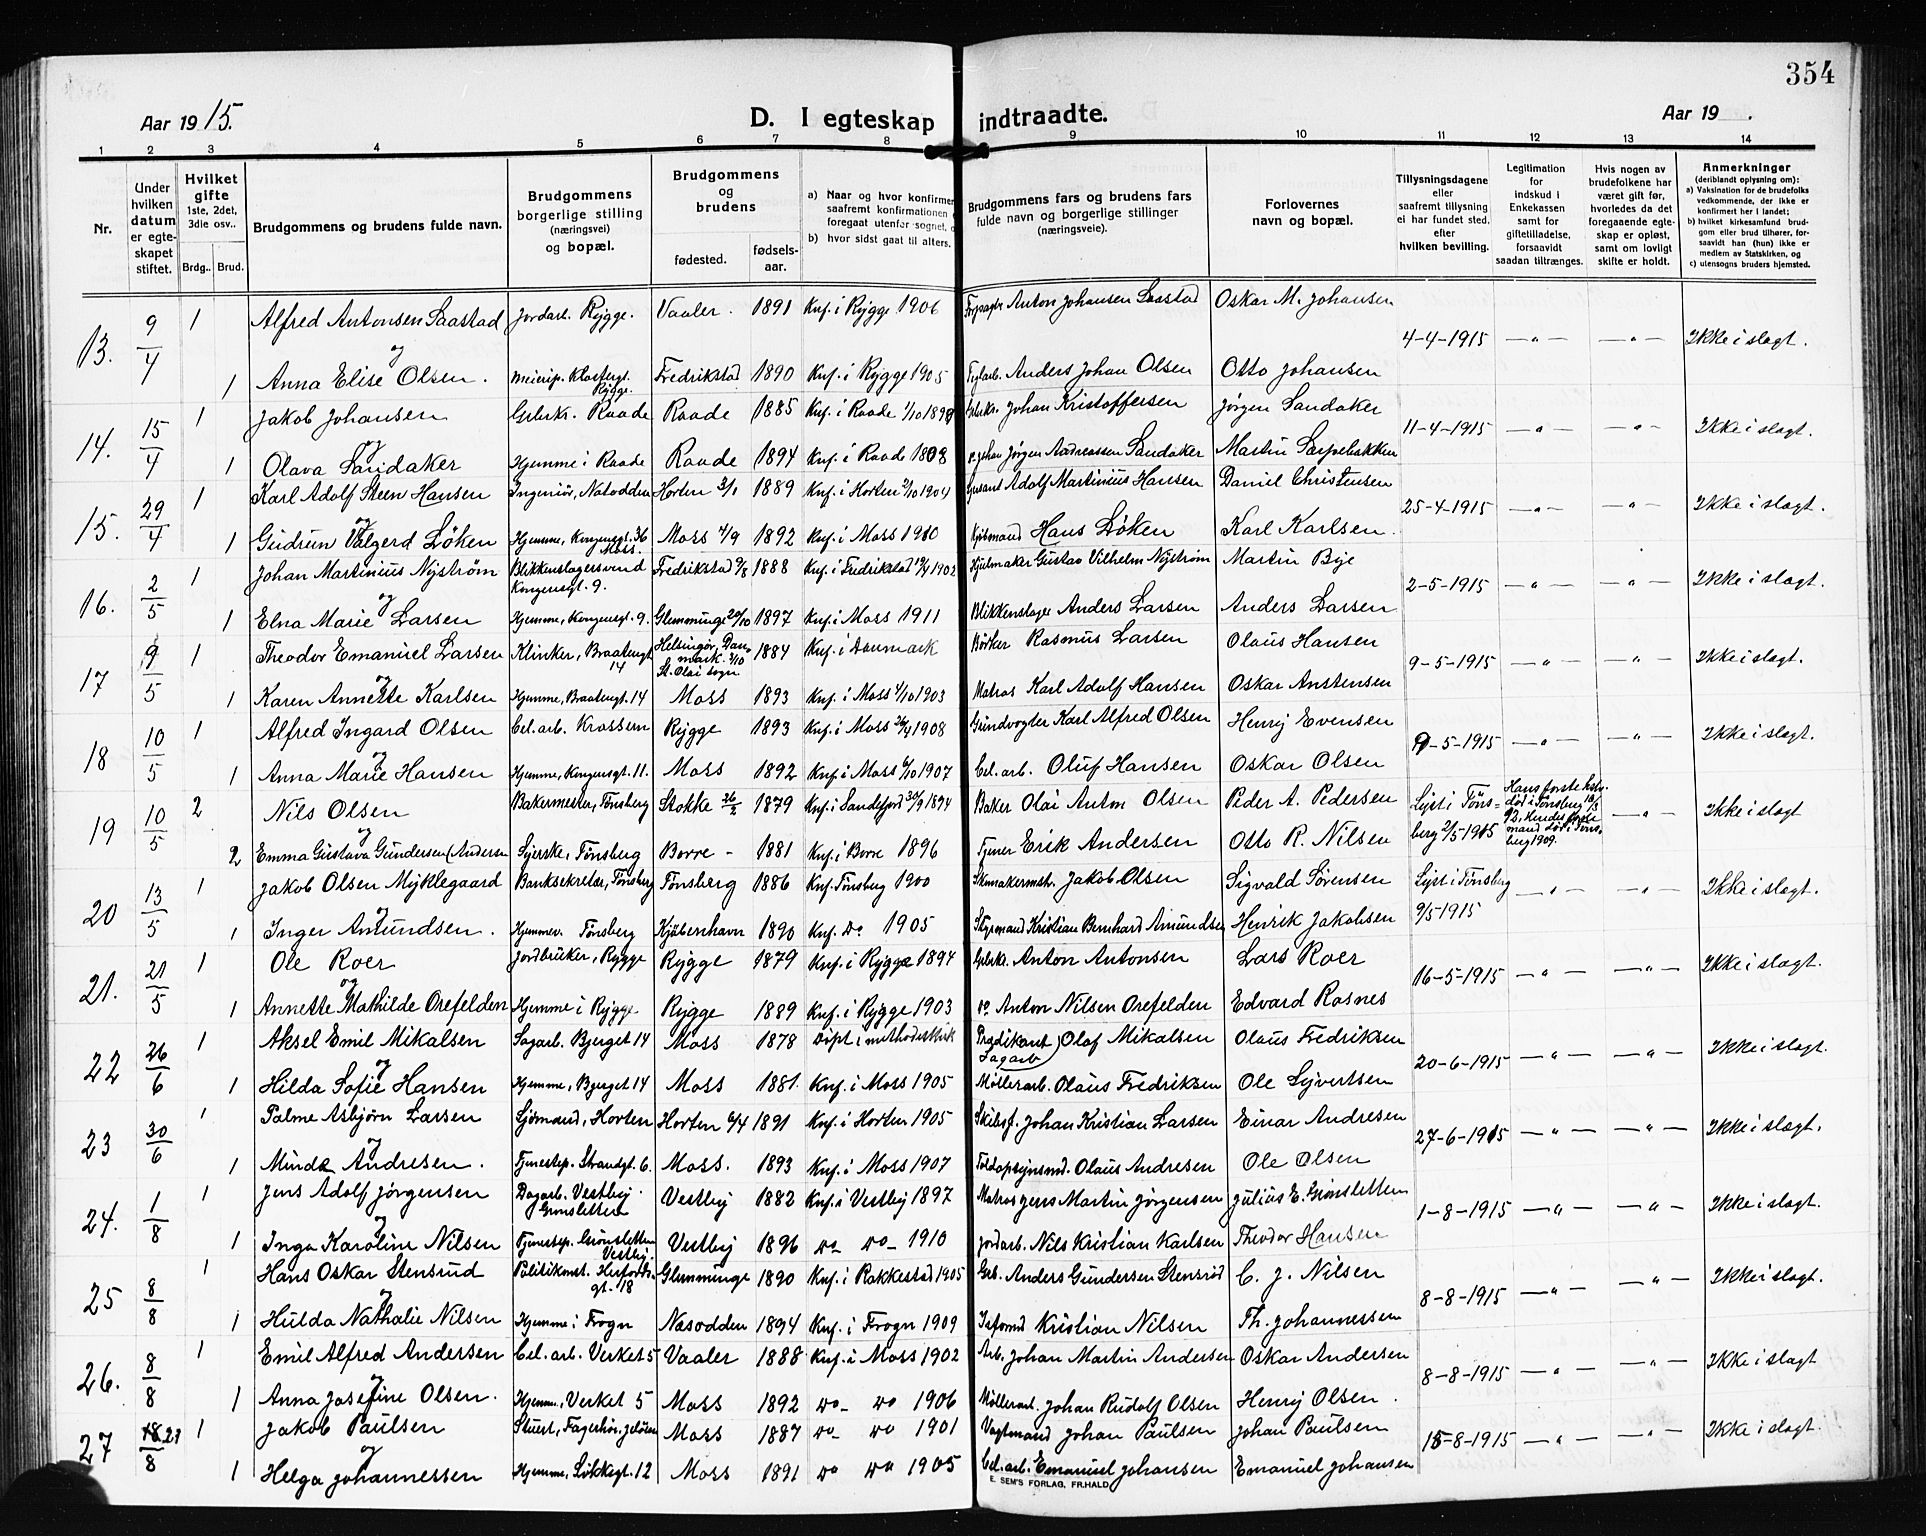 354
Aar 1915. D. I egteskap indtraadte. Aar 19 .
1 2 3 4 5 6 7 8 9 10 11 12 13 14
Nr.
Under hvilken datum er egteskapet stiftet.
Hvilket gifte 1ste, 2det, 3die osv..
Brdg.. Brud.
Brudgommens og brudens fulde navn.
Brudgommens borgerlige stilling (næringsvei) og bopæl.
Brudgommens og brudens
fødested. fødsels-aar.
a) Naar og hvor konfirmer saafremt konfirmationen foregaat utenfor sognet,
b) hvor sidst gaat til alters.
Brudgommens fars og brudens fars fulde navn og borgerlige stillinger (næringsveie).
Forlovernes navn og bopæl.
Tillysningsdagene eller saafremt tillysning ei har fundet sted. efter hvilken bevilling.
Legitimation for indskud i Enkekassen samt for giftetilladelse, forsaavidt saadan tiltrænges.
Hvis nogen av brudefolkene har været gift før, hvorledes da det foregaaende egteskap er opløst, samt om lovligt skifte er holdt.
Anmerkninger (deriblandt oplysning om): a) Vaksination for de brudefolks vedkommende, der ikke er konfirmert her i landet; b) hvilket kirkesamfund brudgom eller brud tilhører, forsaavidt han (hun) ikke er medlem av Statskirken, og c) utensogns bruders hjemsted.
13. 9/4 1 Alfred Antonsen Saastad Jordarb. Rygge. Vaaler. 1891 Knf. i Rygge 1906 Anton Johansen Saastad Oskar M. Johansen
og 4-4-1915 —"— —"— Ikke i slegt.
1 Anna Elise Olsen. Meierip. Klostergt. Rygge. Fredrikstad 1890 Knf. i Rygge 1905 Teglarb. Anders Johan Olsen Otto Johansen
14. 15/4 1 Jakob Johansen Gbrkr. Raade Raade 1885 Knf. i Raade 1/10 1899 Gbrkr. Johan Kristoffersen Jørgen Sandaker
og 11-4-1915 —"— —"— Ikke i slegt.
1 Olava Sandaker Hjemme i Raade Raade 1894 Knf. i Raade 1908 Jørgen Andreassen Sandaker Martin Sarpebakken
15. 29/4 1 Karl Adolf Steen Hansen Ingeniør, Notodden Horten 3/1 1889 Knf. i Horten 2/10 1904 Adolf Martinius Hansen Daniel Christensen
og 25-4-1915 —"— —"— Ikke i slegt.
1 Gudrun Valgerd Løken Hjemme, Kongensgt. 36 Moss. Moss 4/9 1892 Knf. i Moss 1910 Kjøbmand Hans Løken Karl Karlsen.
16. 2/5 1 Johan Martinius Nystrøm Blikkenslagersvend Kongensgt. 9. Fredrikstad 9/8 1888 Knf. i Fredrikstad 1902 Hjulmaker Gustav Vilhelm Nystrøm Martin Bye
og 2-5-1915 —"— —"— Ikke i slegt.
1 Elna Marie Larsen Hjemme, Kongensgt. 9. Glemminge 20/10 1897 Knf. i Moss 1911 Blikkenslager Anders Larsen Anders Larsen
17 9/5 1 Theodor Emanuel Larsen Klinker, Braatengt 14 Helsingør, Danmark. 3/10 St. Olai sogn 1884 Knf. i Danmark Bøtker Rasmus Larsen Olaus Hansen
og 9-5-1915 —"— —"— Ikke i slegt.
1 Karen Annette Karlsen Hjemme, Braatengt. 14 Moss 1893 Knf. i Moss 4/10 1903 Matros Karl Adolf Hansen Oskar Anstensen
18 10/5 1 Alfred Ingard Olsen Cel. arb. Krossern Rygge 1893 Knf. i Moss 26/4 1908 Grundvogter Karl Alfred Olsen Henry Evensen
og 9-5-1915 —"— —"— Ikke i slegt.
1 Anna Marie Hansen Hjemme, Kongensgt. 11. Moss 1892 Knf. i Moss 6/10 1907 Cel. arb. Oluf Hansen Oskar Olsen
19 10/5 2 Nils Olsen Bakermester, Tønsberg Stokke 26/2 1879 Knf. i Sandefjord 30/9 1894 Baker Olai Anton Olsen Peder A. Pedersen
og Lyst i Tønsberg 2/5 1915 Hans første hstr. død i Tønsberg 18/3 92, Hendes første mand død i Tønsberg 1909. —"— Ikke i slegt
2 Emma Gustava Gundersen (Andersen Syerske, Tønsberg Borre - 1881 Knf. i Borre 1896 Tjener Erik Andersen Otto R. Nilsen
20 13/5 1 Jakob Olsen Myklegaard Banksekretær, Tønsberg Tønsberg 1886 Knf. Tønsberg 1900 Skomakermstr. Jakob Olsen Sigvald Sørensen
og Lyst i Tønsberg 9/5-1915 —"— —"— Ikke i slegt.
1 Inger Amundsen. Hjemmev. Tønsberg Kjøbenhavn 1890 Knf. do 1905 Styrmand Kristian Bernhard Amundsen Henrik Jakobsen
21. 21/5 1 Ole Roer Jordbruker, Rygge Rygge 1879 Knf. i Rygge 1894 Gbrkr. Anton Antonsen Lars Roer
og 16-5-1915 —"— —"— Ikke i slegt.
1 Annette Mathilde Orefelden Hjemme i Rygge Rygge 1889 Knf. i Rygge 1903 do Anton Nilsen Orefelden Edvard Rosnes
22 26/6 1 Aksel Emil Mikalsen Sagarb. Bjerget 14 Moss 1878 Døpt i methodistkirk Prædikant (Sagarb) Olaf Mikalsen Olaus Fredriksen
og 20-6-1915 —"— —"— Ikke i slegt.
1 Hilda Sofie Hansen Hjemme, Bjerget 14 Moss 1881. Knf. i Moss 1905 Møllerarb. Olaus Fredriksen Ole Syvertsen
23 30/6 1 Palme Asbjørn Larsen Sjømand, Horten Horten 6/4 1891 Knf. i Horten 1905 Skibsf. Johan Kristian Larsen Einar Andresen
og 27-6-1915 —"— —"— Ikke i slegt.
1 Minda Andresen. Tjenestep. Strandgt. 6. Moss. 1893 Knf. i Moss 1907 Toldopsynsmd. Olaus Andresen Ole Olsen
24. 1/8 1 Jens Adolf Jørgensen Dagarb. Vestby. Grønsletten Vestby 1882 Knf. i Vestby 1897 Matros Jens Martin Jørgensen Julius E. Grønsletten
og 1-8-1915 —"— —"— Ikke i slegt.
1 Inga Karoline Nilsen Tjenestep. Grønsletten Vestby. Vestby 1896 do do 1910 Jordarb. Nils Kristian Karlsen Theodor Hansen
25 8/8 1 Hans Oskar Stensrud Politikonst. Herfordsgt. 18 Glemminge 1890 Knf. i Rakkestad 1905 Grb. Anders Gundersen Stensrød C. J. Nilsen
og 8-8-1915 —"— —"— Ikke i slegt.
1 Hulda Nathalie Nilsen Hjemme i Frogn Nesodden 1894 Knf. i Frogn 1909 Kristian Nilsen Th. Johannessen
26. 8/8 1 Emil Alfred Andersen Cel. arb. Verket 5 Vaaler 1888 Knf. i Moss 1902 Arb. Johan Martin Andersen Oskar Andersen
og 8-8-1915 —"— —"— Ikke i slegt
1 Anna Josefine Olsen. Hjemme, Verket 5 Moss 1892 do do 1906 Møllerarb. Johan Rudolf Olsen Henry Olsen.
27 /8 1 Jakob Paulsen Stuert, Fagerhøi, Jeløen Moss 1887 do do 1901 Vagtmand Johan Paulsen Johan Paulsen
og 15-8-1915 —"— —"— Ikke i slegt.
1 Helga Johannessen Hjemme, Løkkegt. 12 Moss 1891 do do 1905 Cel. arb. Emanuel Johansen Emanuel Johansen
E. SEM'S FORLAG, FR.HALD